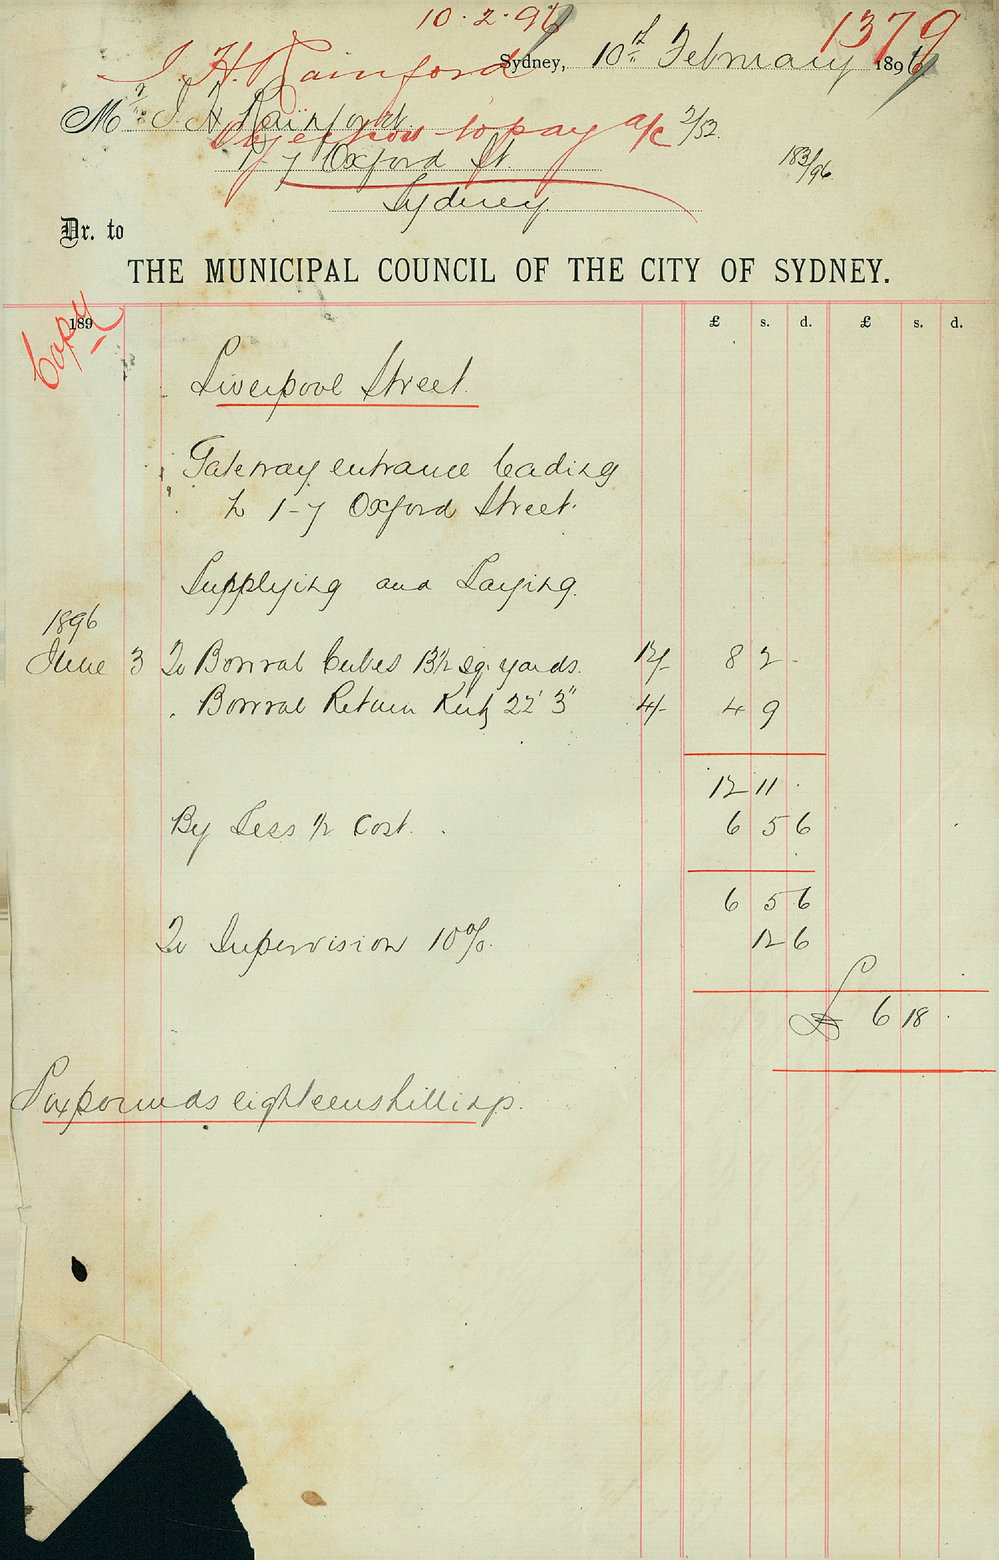 10.2.96
1379
J H. Rainford
Sydney, 10th February 1896
Mr J H Rainford
Objection to pay a/c 2/52.
1-7 Oxford St.
183/96.
Sydney
Dr. to
THE MUNICIPAL COUNCIL OF THE CITY OF SYDNEY.
Copy
189
£ s. d. £ s. d.
Liverpool Street
Gateway entrance leading
to 1-7 Oxford Street.
Supplying and Laying.
1896
June 3 To Bowral Cubes 13½ sq. yards. 12/- 8 2 -
" Bowral Return Kerb 22' 3" 4/- 4 9
12 11 -
By Less ½ Cost. 6 5 6
6 5 6
To Supervision 10%. 12 6
£ 6 18 -
Six pounds eighteen shillings.